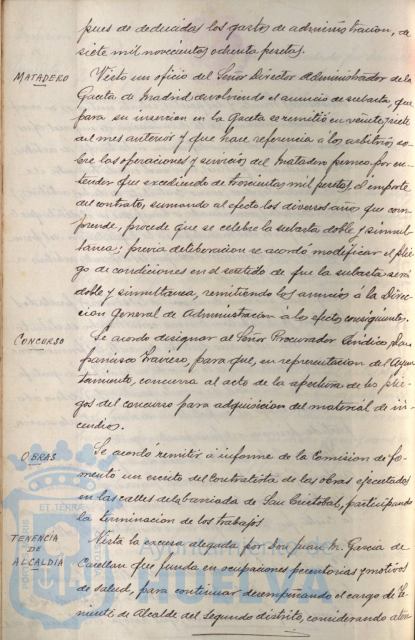 pues de deducidos los gastos de administracion, de
siete mil novecientas ochenta pesetas.
MATADERO
Visto un oficio del Señor Director Administrador de la
Gaceta de Madrid devolviendo el anuncio de subasta, que
para su insercion en la Gaceta se remitió en veinte y siete
del mes anterior y que hace referencia á los arbitrios so-
bre las operaciones y servicios del Matadero público por en-
tender que excediendo de trescientas mil pesetas el importe
del contrato, sumando al efecto los diversos años que com-
prende, procede que se celebre la subasta doble y simul-
tanea; previa deliberacion se acordó modificar el plie-
go de condiciones en el sentido de que la subasta será
doble y simultanea, remitiendo los anuncios á la Direc-
cion General de Administracion á los efectos consiguientes.
CONCURSO
Se acordo designar al Señor Procurador Sindico Don
Francisco Traviero, para que, en representacion del Ayun-
tamiento, concurra al acto de la apertura de los plie-
gos del concurso para adquisicion del material de in-
cendios.
OBRAS
Se acordó remitir á informe de la Comision de Fo-
mento un escrito del Contratista de las obras ejecutadas
en las calles de la barriada de San Cristobal, participando
la terminacion de los trabajos.
TENENCIA
DE
ALCALDIA
Vista la excusa alegada por Don Juan M. Garcia de
que funda en ocupaciones perentorias y motivos
de salud, para continuar desempeñando el cargo de Te-
niente de Alcalde del Segundo distrito, considerando aten-
Ayuntamiento de
HUELVA
ET TERRA